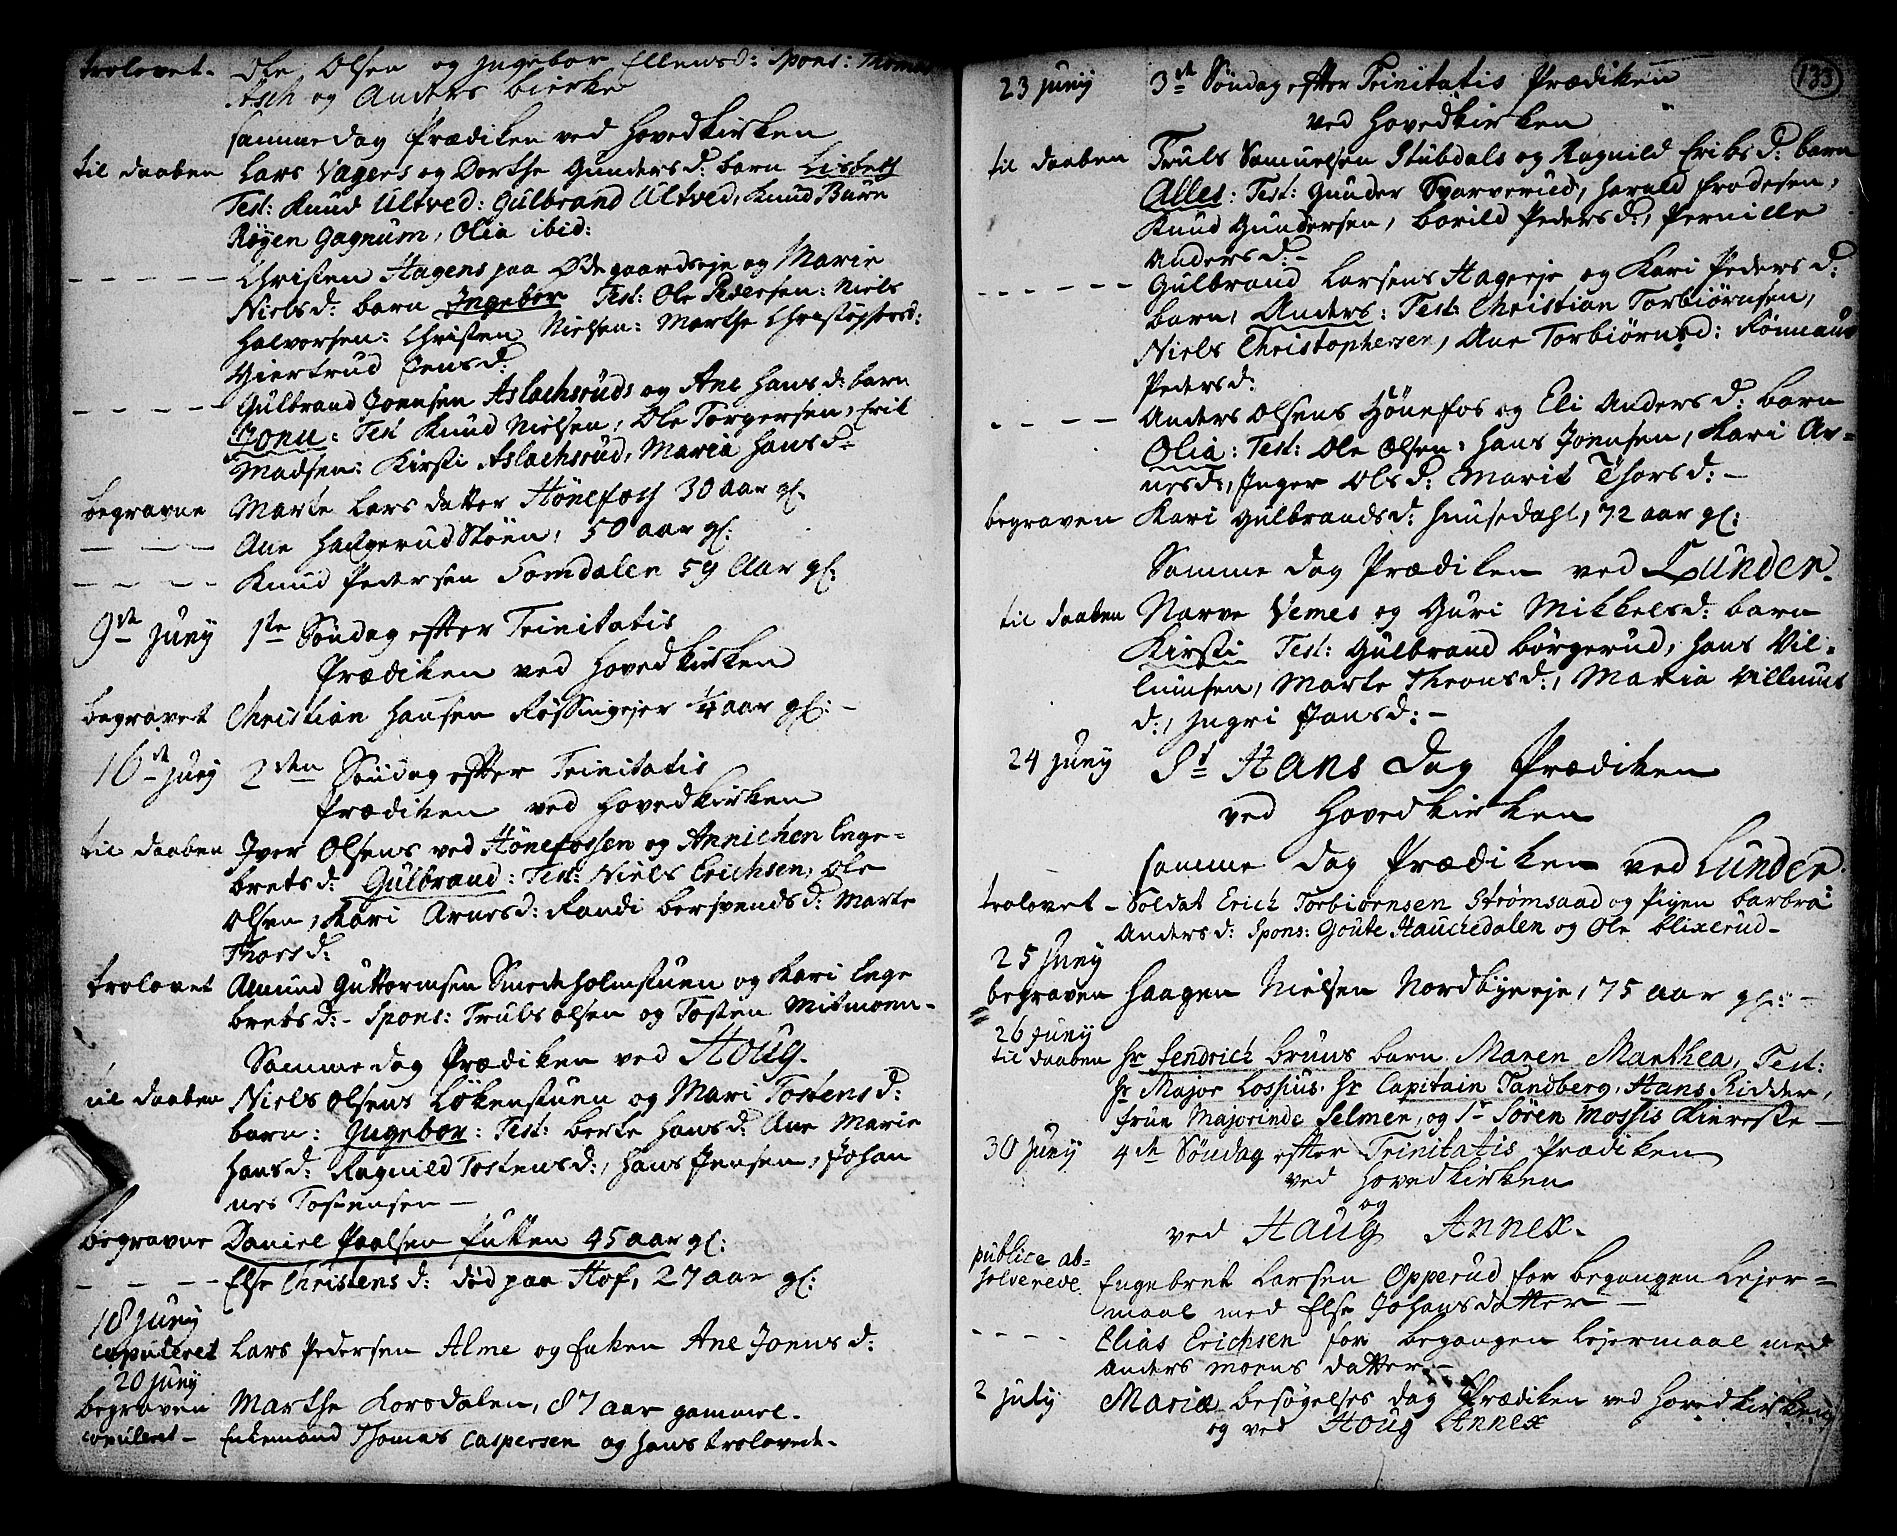 trolovet. Ole Olsen og Ingebor Ellensd: Spons: Thomas
Asch og Anders bierke
samme dag Prædiken ved Hovedkirken
til daaben Lars Vagers og Dorthe Gundersd: barn Lisbeth
Test: Knud Ultved: Gulbrand Ultved, Knud Burn
Røyen Gagnum, Olia ibid:
- - - - - Christen Hagens paa Ødegaardseje og Marie
Nielsd: barn Ingebor Test: Ole Pedersen: Niels
Halvorsen: Christen Nielsen: Marthe Christophersd:
Giertrud Jensd:
- - - - - Gulbrand Jonnsen Aslachsruds og Ane Hansd: barn
Jonn: Test Knud Nielsen, Ole Torgersen, Erik
Madsen: Kirsti Aslachsrud, Maria Hansd:
begravne Marte Lars datter Hönefoss 30 aar gl.
- - - Ane Støen, 50 aar gl:
- - - - Knud Pedersen Somdalen 59 Aar gl:
9de Juny 1ste Søndag efter Trinitatis
Prædiken ved Hovedkirken
begravet Christian Hansen Røssingejer 1/4 aar gl: -
16de Juny 2den Søndag efter Trinitatis
Prædiken ved Hovedkirken
til daaben Iver Olsens ved Hönefossen og Annichen Enge-
bretsd: Gulbrand: Test: Niels Erichsen, Ole
Olsen, Kari Arnesd: Randi berswendsd: Marte
Thorsd:
trolovet Amund Guttormsen Smedeholmstuen og Kari Enge
bretsd:- Spons: Truls Olsen og Tosten Mitmoen-
Samme dag Prædiken ved Houg.
til daaben Niels Olsens Lökenstuen og Mari Tostensd:
barn: Ingebor: Test: berte Hansd: Ane Marie
Hansd: Ragnild Tostensd:, Hans Jensen, Johan
nes Tostensen -
begravne Daniel Paalsen Fütten 45 aar gl:
- - - Else Christensd: død paa Hof, 27 aar gl:
18 Juny
copuleret Lars Pedersen Alme og Enken Ane Jonnsd:
20 Juny
begraven Marthe Korsdalen, 87 aar gammel.
copuleret - Enkemand Thomas Caspersen og hans trolovede.
133
23 Juny 3de Søndag efter Trinitatis Prædiken
ved Hovedkirken
til daaben Truls Samuelsen Stubdals og Ragnild Eriksd: barn
Alles: Test: Gunder Svarverud, Harald Frodesen,
Knud Gundersen, borild Pedersd:, Pernille
Andersd:-
- - - - - Gulbrand Larsens Hagereje og Kari Pedersd:
barn, Anders: Test: Christian Torbiørnsen,
Niels Christophersen, Ane Torbiørnsd: Rønnaug
Pedersd:
- - - - Anders Olsens Hönefos og Eli Andersd: barn
Olia: Test: Ole Olsen, Hans Jonnsen, Kari Ar=
nesd:, Inger Olsd: Marit Thorsd: -
begraven Kari Gulbrandsd: Hnusedahl, 72 aar gl:
Samme dag Prædiken ved Lunder.
til daaben Narve Vemes og Guri Mikkelsd: barn
Kirsti Test: Gulbrand börgerud, Hans Vil-
lumsen, Marte Theonsd:, Maria Villums
d:, Ingri Jansd: -
24 Juny St Hans Dag Prædiken
ved Hovedkirken
samme dag Prædiken ved Lunder.
trolovet - Soldat Erich Torbiørnsen Strømsaad og Pigen barbra
Andersd: Spons: Goute Hauchedalen og Ole blixerud-
25 Juny
begraven Haagen Nielsen Nordbyeeje, 75 aar gl: -
26 Juny
til daaben Hr Fendrich bruns barn Maren Marthea, Test:
Hr Major Lossius, Hr Capitain Tandberg, Hans Ridder,
Frue Majorinde Selmer, og Sr Sören Mossis Kiereste -
30 Juny 4de Søndag efter Trinitatis Prædiken
ved Hovedkirken
og
ved Haug Annex.
publice ab-
solverede Engebret Larsen Opperud for begangen Lejer=
maal med Else Johansdatter -
- - - - Elias Erichsen for begangen lejermaal med
Anders moens datter. -
2 july Mariæ besøgelses dag Prædiken ved Hovedkirken
og ved Houg Annex